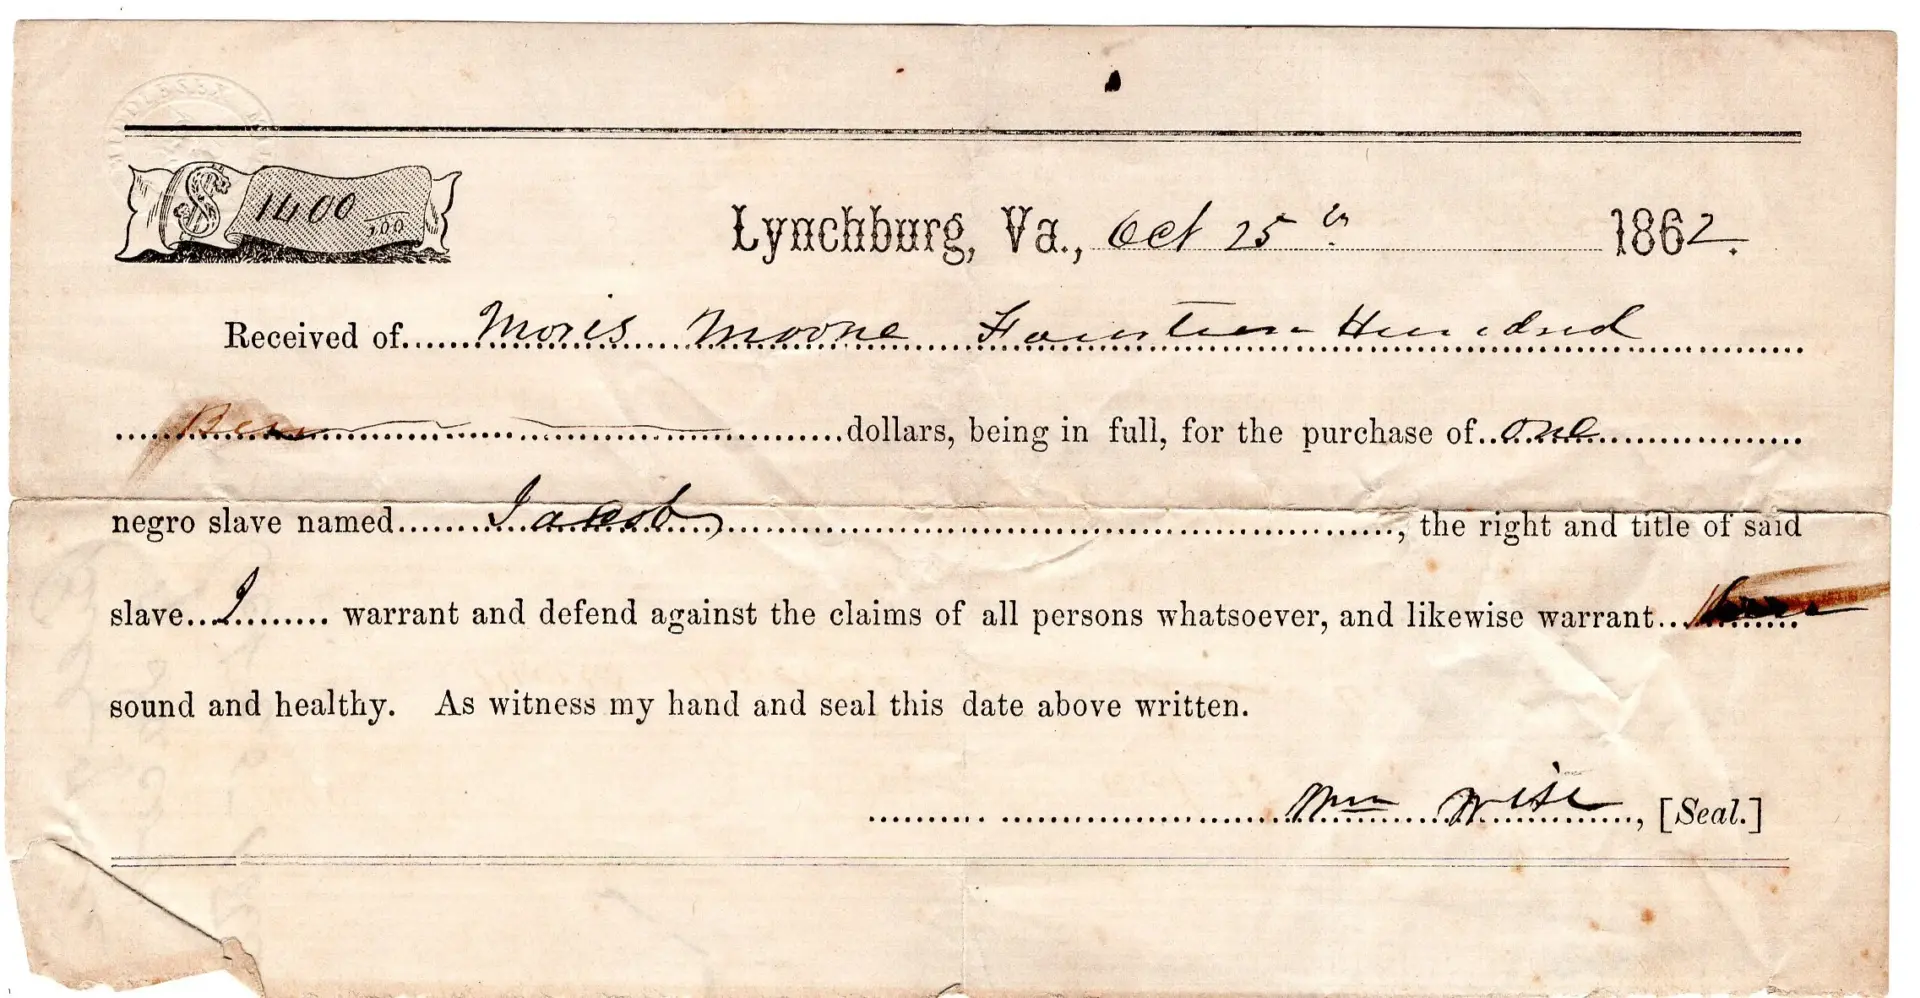 MIDDLESEX MIL
$ 1400 /100
Lynchburg, Va., Oct 25th 1862.
Received of Moris Moone Fourteen Hundred
dollars, being in full, for the purchase of one
negro slave named Jacob, the right and title of said
slave I warrant and defend against the claims of all persons whatsoever, and likewise warrant
sound and healthy. As witness my hand and seal this date above written.
Wm Wise, [Seal.]